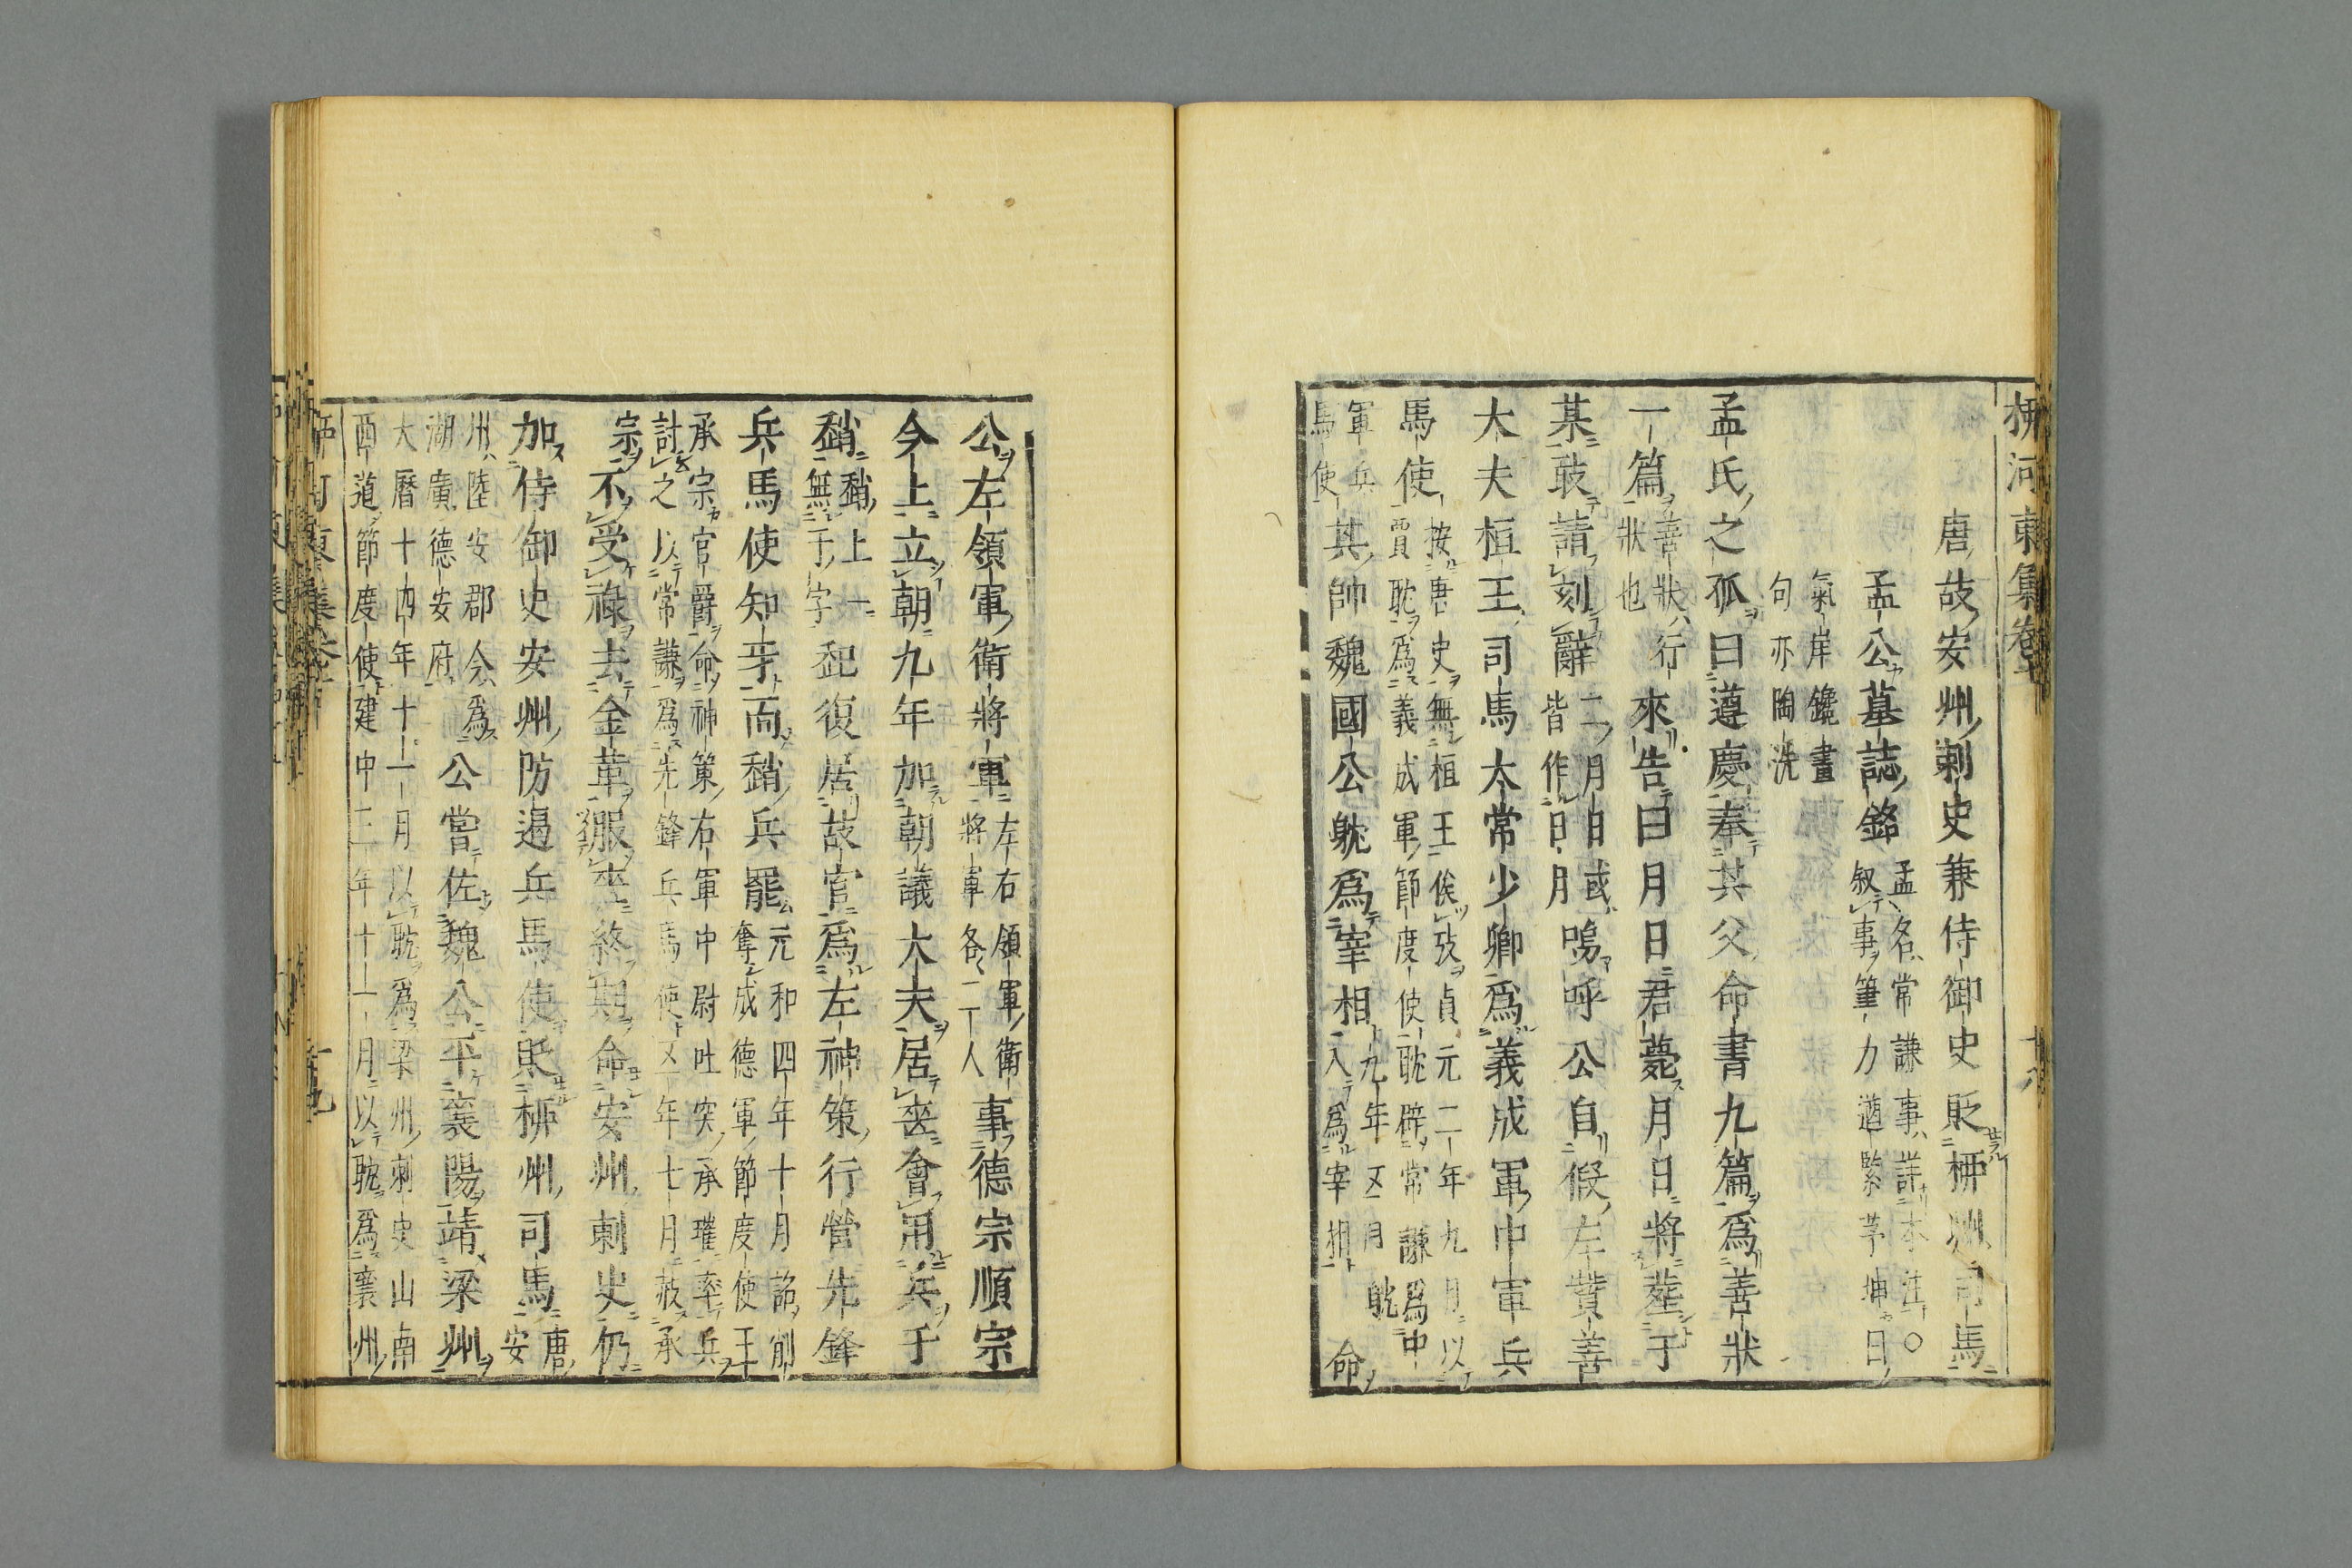 柳河東集卷十
十八
唐故安州刺史兼侍御史貶柳州司馬
孟公墓誌銘
孟名常謙事詳本注○
叙事筆力遒緊茅坤曰
氣岸鑱畫
句亦陶洗
孟氏之孤曰遵慶奉其父命書九篇爲善狀
一篇
善狀行
狀也
來告曰月日君薨月日將葬于
某敢請刻辭
二月日或
皆作日月
嗚呼公自假左贊善
大夫桓王司馬太常少卿爲義成軍中軍兵
馬使
按唐史無桓王俟攷貞元二年九月以
賈耽爲義成軍節度使耽辟常謙爲中
軍兵
馬使
其帥魏國公躭爲宰相
九年五月躭
入爲宰相
命
公左領軍衛將軍
左右領軍衛
將軍各二人
事德宗順宗
今上立朝九年加朝議大夫居喪會用兵于
稍
稍上一
無于字
起復居故官爲左神策行營先鋒
兵馬使知牙而稍兵罷
元和四年十月詔削
奪成德軍節度使王
承宗官爵命神策右軍中尉吐突承璀率兵
討之以常謙爲先鋒兵馬使五年七月赦承
宗
不受祿去金革服喪終期命安州刺史仍
加侍御史安州防遏兵馬使貶柳州司馬
唐安
州陸安郡今爲
湖廣德安府
公嘗佐魏公平襄陽靖梁州
大曆十四年十一月以耽爲梁州刺史山南
西道節度使建中三年十一月以耽爲襄州